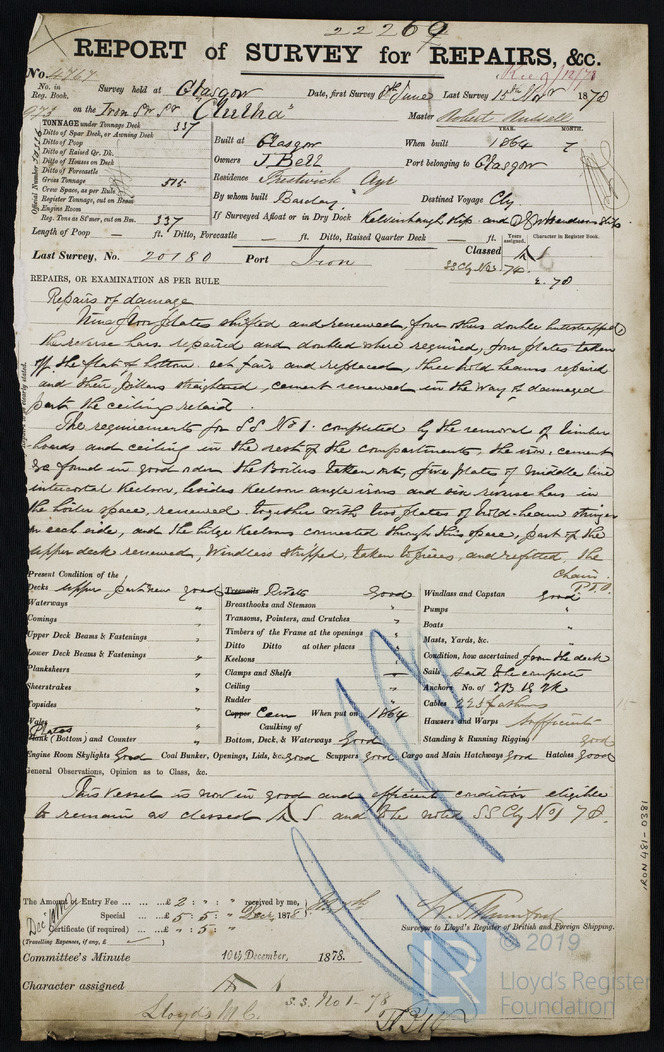 22269
REPORT of SURVEY for REPAIRS, &c.
No. 4767
No. in Reg. Book. Survey held at Glasgow Date, first Survey 8th June Last Survey 15th Novr 1878
973 on the Iron Sr Sr "Clutha" Master Robert Russell
TONNAGE under Tonnage Deck 337
Ditto of Spar Deck, or Awning Deck
Ditto of Poop
Ditto of Raised Qr. Dk.
Ditto of Houses on Deck
Ditto of Forecastle
Gross Tonnage 515
Crew Space, as per Rule
Register Tonnage, cut on Beam
Engine Room
Reg. Tons as St'mer, cut on Bm. 337
Official Number
YEAR. MONTH.
Built at Glasgow When built 1864 7
Owners J Bell Port belonging to Glasgow
Residence Prestwick Ayr
By whom built Barclay Destined Voyage Cly
If Surveyed Afloat or in Dry Dock Kelvinhaugh slip and D & W Hendersons slip
Length of Poop — ft. Ditto, Forecastle — ft. Ditto, Raised Quarter Deck — ft.
Years assigned. Character in Register Book.
Last Survey, No. 20180 Port Iron Classed A 1
SS Cly No 2 - 74.
2. 78
REPAIRS, OR EXAMINATION AS PER RULE
Repairs of damage
Nine floor plates shifted and renewed, four others double buttstrapped
the reverse bars repaired and doubled where required, four plates taken
off the flat of bottom set fair and replaced, three hold beams repaired
and their pillars straightened, cement renewed in the way of damaged
part the ceiling relaid.
The requirements for S.S. No 1. completed by the removal of timber
boards and ceiling in the rest of the compartments, the iron, cement
&c found in good order the Boilers taken out, five plates of middle line
intercostal Keelson, besides Keelson angle irons and six reverse bars in
the boiler space, renewed together with two plates of hold-beam stringer
on each side, and the bilge Keelsons connected through this space, part of the
upper deck renewed, Windlass stripped, taken to pieces, and refitted, the
chain
P.T.O.
Present Condition of the
Decks upper part new good
Waterways "
Comings "
Upper Deck Beams & Fastenings "
Lower Deck Beams & Fastenings "
Planksheers "
Sheerstrakes "
Topsides "
Wales "
Plates
Plank (Bottom) and Counter "
Treenails Rivets Good
Breasthooks and Stemson "
Transoms, Pointers, and Crutches "
Timbers of the Frame at the openings "
Ditto Ditto at other places "
Keelsons "
Clamps and Shelfs —
Ceiling "
Rudder "
Copper Cem When put on 1864
Caulking of
Bottom, Deck, & Waterways Good
Windlass and Capstan good
Pumps "
Boats "
Masts, Yards, &c. "
Condition, how ascertained from the deck
Sails said to be complete
Anchors No. of 3B 1S 2K
Cables 225 fathoms
Hawsers and Warps Sufficient
Standing & Running Rigging good
Engine Room Skylights Good Coal Bunker, Openings, Lids, &c. good Scuppers good Cargo and Main Hatchways Good Hatches Good
General Observations, Opinion as to Class, &c.
This vessel is now in good and efficient condition eligible
to remain as classed A 1 and to be noted SS Cly No 1 78.
The Amount of Entry Fee ... £ 2 : " : " received by me,
Special ... £ 5 : 5 : " Decr 1878
Certificate (if required) ... £ " : 5 : "
(Travelling Expenses, if any, £ )
Surveyor to Lloyd's Register of British and Foreign Shipping.
Committee's Minute 10th December, 1878.
Character assigned A 1
S.S. No 1-78
Lloyd's M.C.
IRON 481-0381
© 2019
LR
Lloyd's Register
Foundation